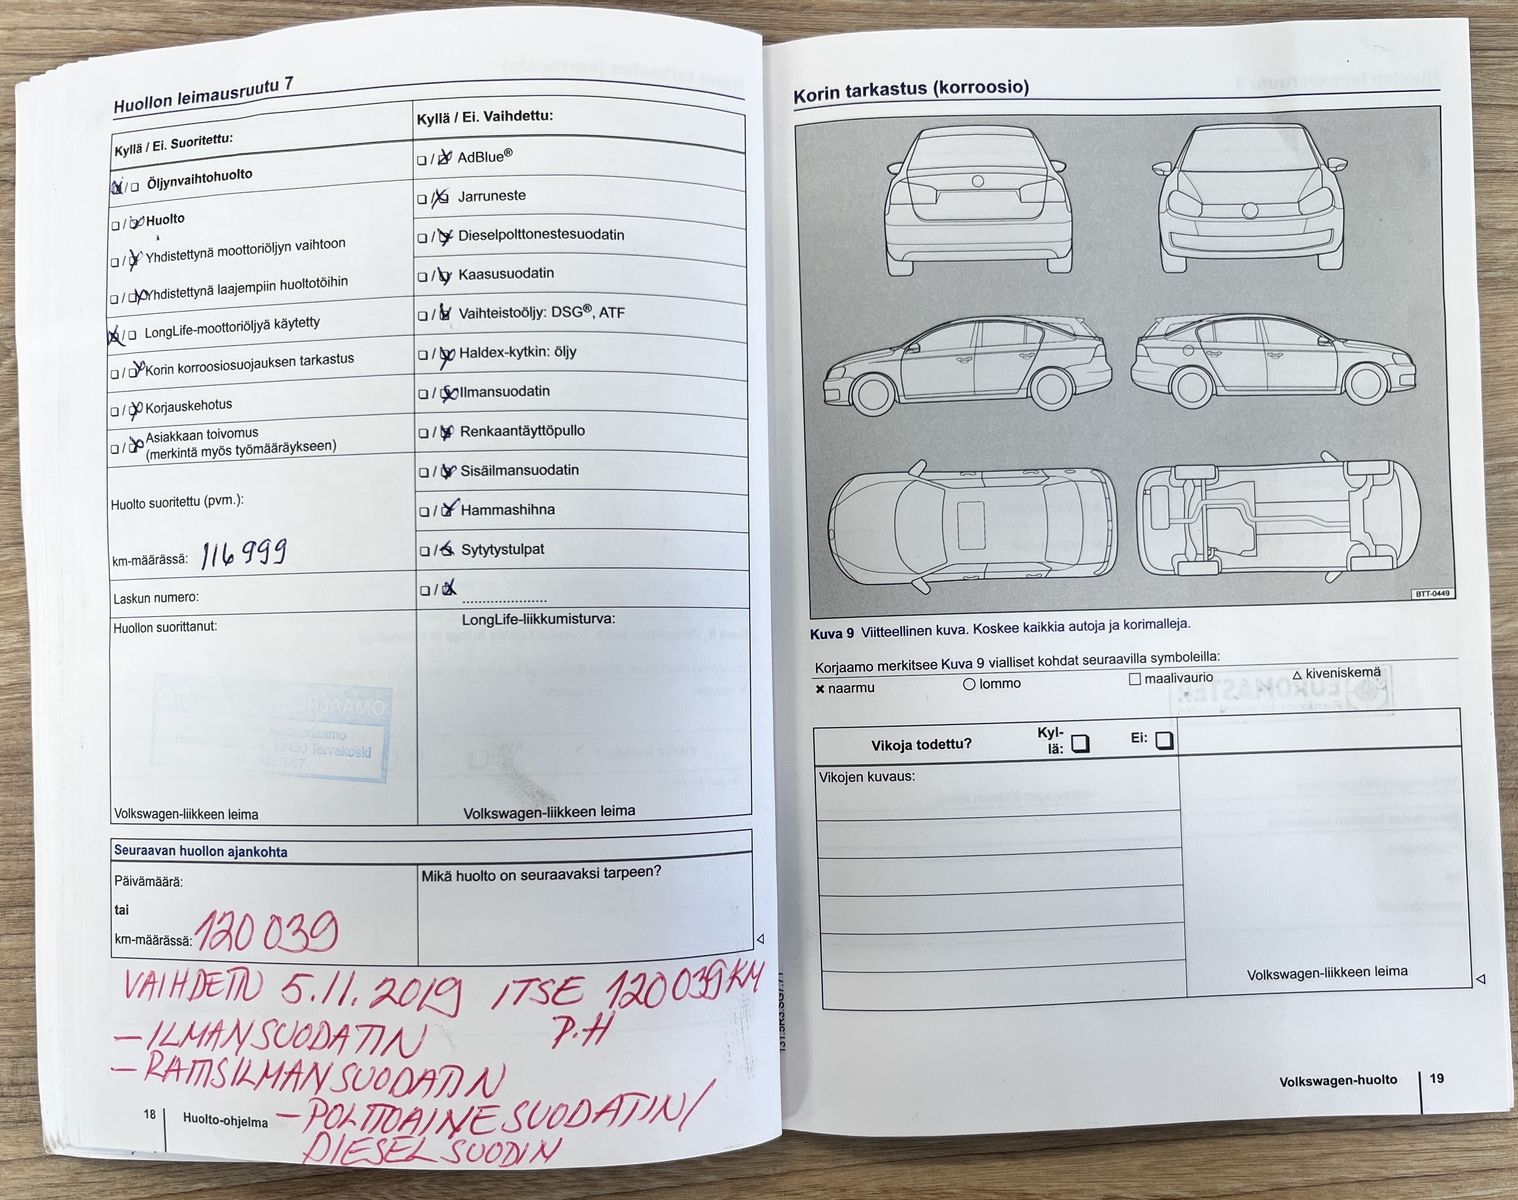 Huollon leimausruutu 7
Kyllä / Ei. Suoritettu:
Öljynvaihtohuolto
Huolto
Yhdistettynä moottoriöljyn vaihtoon
Yhdistettynä laajempiin huoltotöihin
LongLife-moottoriöljyä käytetty
Korin korroosiosuojauksen tarkastus
Korjauskehotus
Asiakkaan toivomus
(merkintä myös työmääräykseen)
Huolto suoritettu (pvm.):
km-määrässä: 116 999
Laskun numero:
Huollon suorittanut:
13400 Tervakoski
Volkswagen-liikkeen leima
Kyllä / Ei. Vaihdettu:
AdBlue®
Jarruneste
Dieselpolttonestesuodatin
Kaasusuodatin
Vaihteistoöljy: DSG®, ATF
Haldex-kytkin: öljy
Ilmansuodatin
Renkaantäyttöpullo
Sisäilmansuodatin
Hammashihna
Sytytystulpat
LongLife-liikkumisturva:
Volkswagen-liikkeen leima
Seuraavan huollon ajankohta
Päivämäärä:
tai
km-määrässä: 120 039
Mikä huolto on seuraavaksi tarpeen?
VAIHDETTU 5.11.2019 ITSE 120 039 KM
P.H
– ILMANSUODATIN
– RAITISILMANSUODATIN
– POLTTOAINESUODATIN/
DIESELSUODIN
18 Huolto-ohjelma
Korin tarkastus (korroosio)
BTT-0449
Kuva 9 Viitteellinen kuva. Koskee kaikkia autoja ja korimalleja.
Korjaamo merkitsee Kuva 9 vialliset kohdat seuraavilla symboleilla:
× naarmu ○ lommo □ maalivaurio △ kiveniskemä
Vikoja todettu? Kyl-
lä: Ei:
Vikojen kuvaus:
Volkswagen-liikkeen leima
Volkswagen-huolto 19